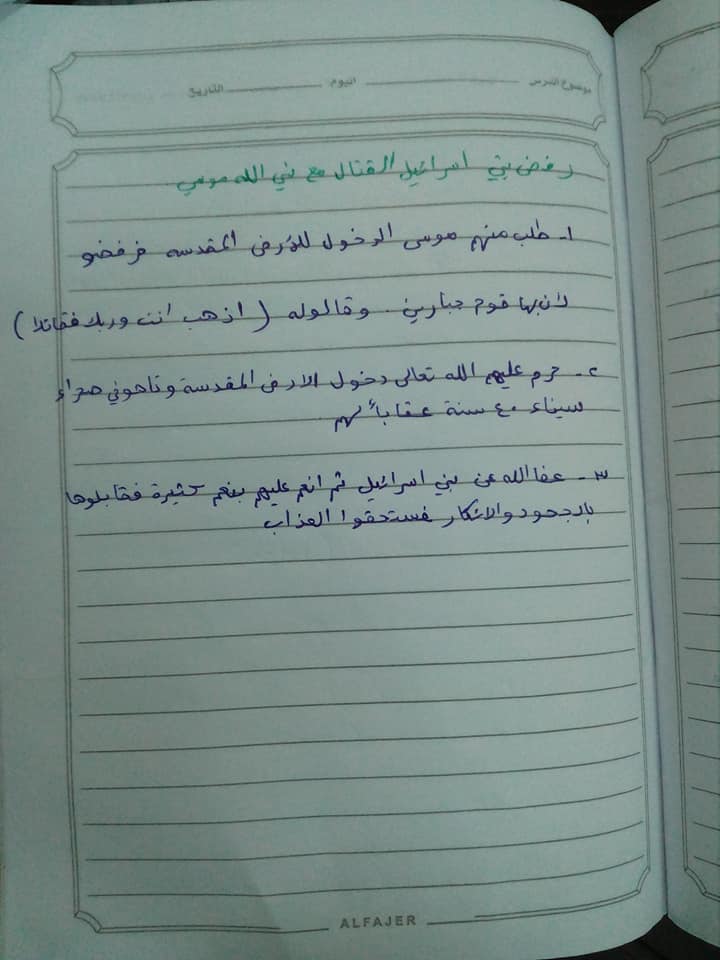 موضوع الدرس اليوم التاريخ
رفض بني اسرائيل القتال مع نبي الله موسى
١- طلب منهم موسى الدخول للأرض المقدسه فرفضو
لان بها قوم جبارين. وقالوله (اذهب انت وربك فقاتلا)
٢- حرم عليهم الله تعالى دخول الارض المقدسة وتاهوني صحراء
سيناء ٤٠ سنة عقاباً لهم
٣- عفا الله عن بني اسرائيل ثم انعم عليهم بنعم كثيرة فقابلوها
بالجحود والانكار فستحقوا العذاب
ALFAJER